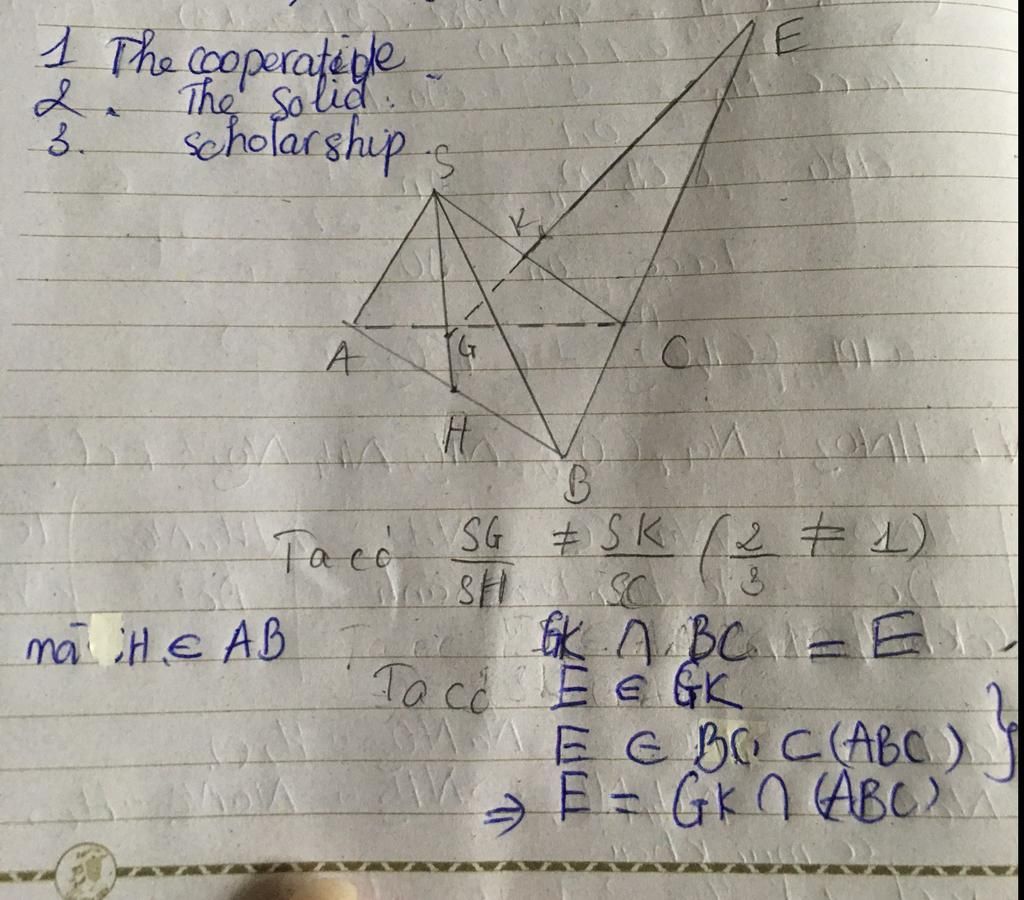 1 The cooperatiple
2. The solid.
3. scholarship.
E
S
K
A
G
C
H
B
Ta có SG/SH ≠ SK/SC (2/3 ≠ 1)
mà H ∈ AB GK ∩ BC = E
Ta có E ∈ GK
E ∈ BC ⊂ (ABC) }
⇒ E = GK ∩ (ABC)